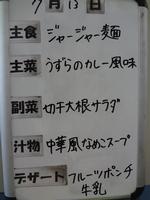 7月13日
主食 ジャージャー麺
主菜 うずらのカレー風味
副菜 切干大根サラダ
汁物 中華風なめこスープ
デザート フルーツポンチ
牛乳